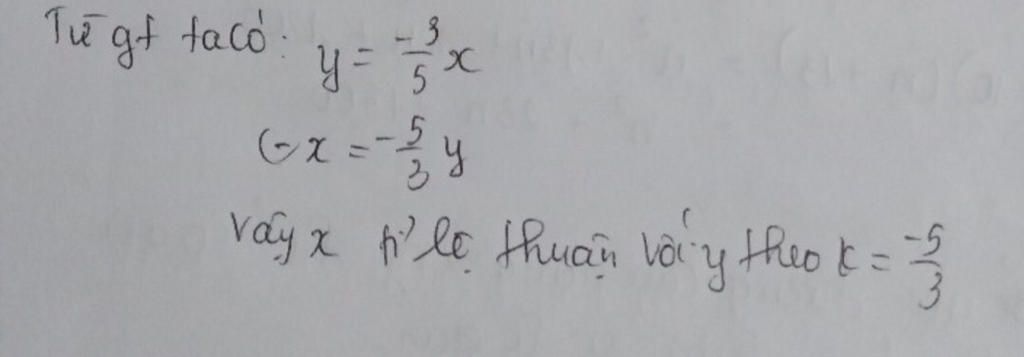 Từ gt ta có: y = -3/5 x
(- x = -5/3 y
Vậy x tỉ lệ thuận với y theo k = -5/3